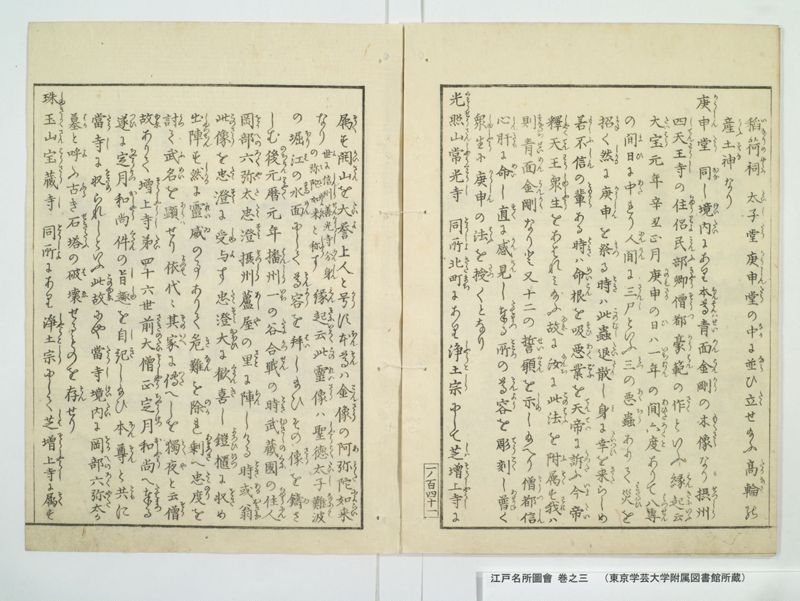 稲荷祠　太子堂庚申堂の中に並び立せ給ふ高輪の
産土神なり
庚申堂　同し境内にあり本尊青面金剛の木像なり摂州
四天王寺の住侶民部卿僧都豪範の作といふ縁起云
大宝元年辛丑正月庚申の日ハ一年の間六度ありて八専
の間日に中り人間に三尸といふ三の悪蟲ありて災を
招く然に庚申を祭る時ハ此蟲退散し身に幸を来らしめ
若不信の輩ある時ハ命根を吸悪業を天帝に訴ふ今帝
釋天王衆生をあはれミ給ふ故に汝に此法を附属す我ハ
則青面金剛なりと又十二の誓願を示し給へり僧都信
心肝に命し直に感見し奉る所の尊容を彫刻し普く
衆生に庚申の法を授くとなり
光照山常光寺　同所北町にあり浄土宗にして芝増上寺に
属す開山を大誉上人と号す本尊ハ金像の阿弥陀如来
なり　世に信州善光寺分身の弥陀如来と称す　縁起云此霊像ハ聖徳太子難波
の堀江の水面にして尊容を拝し給ひその像を鋳さ
しむ後元暦元年播州一の谷合戦の時武蔵國の住人
岡部六弥太忠澄摂州蘆屋の里に陣しける時或翁
此像を忠澄に受与す忠澄大に歓喜し鎧櫃に収め
出陣す然に霊威のすありて危難を除れ剰へ忠度を
討て武名を顕せり　依代々其家に傳へしを獨夜と云僧
故ありて増上寺第四十六世前大僧正定月和尚へ奉る
遂に定月和尚件の旨趣を自記し給ひ本尊と共に
當寺に収られしといふ此故にや當寺境内に岡部六弥太か
墓と呼ふ古き石塔の破壊せしものを存せり
珠玉山宝蔵寺　同所にあり浄土宗にして芝増上寺に属す
一ノ百四十一
江戸名所圖會　巻之三　（東京学芸大学附属図書館所蔵）